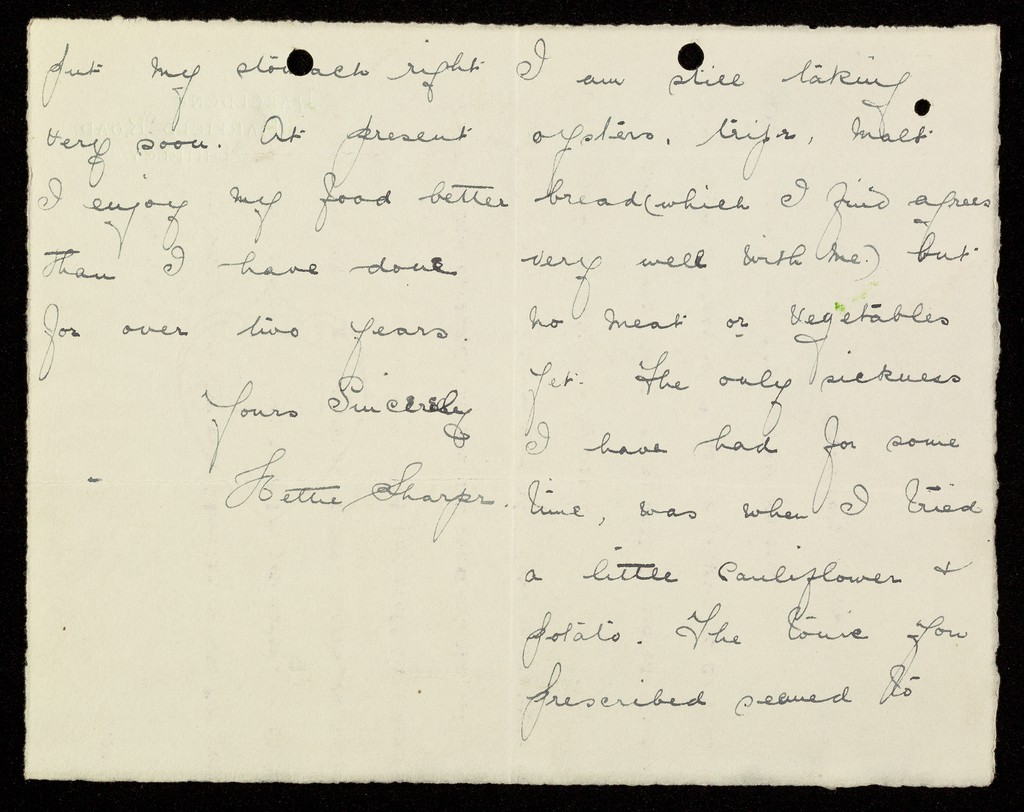 I am still taking
oysters, tripe, Malt
bread (which I find agrees
very well with me.) but
no meat or vegetables
yet. The only sickness
I have had for some
time, was when I tried
a little Cauliflower &
potato. The tonic you
prescribed seemed to
put my stomach right
very soon. At present
I enjoy my food better
than I have done
for over two years.
Yours Sincerely
Hettie Sharpe.